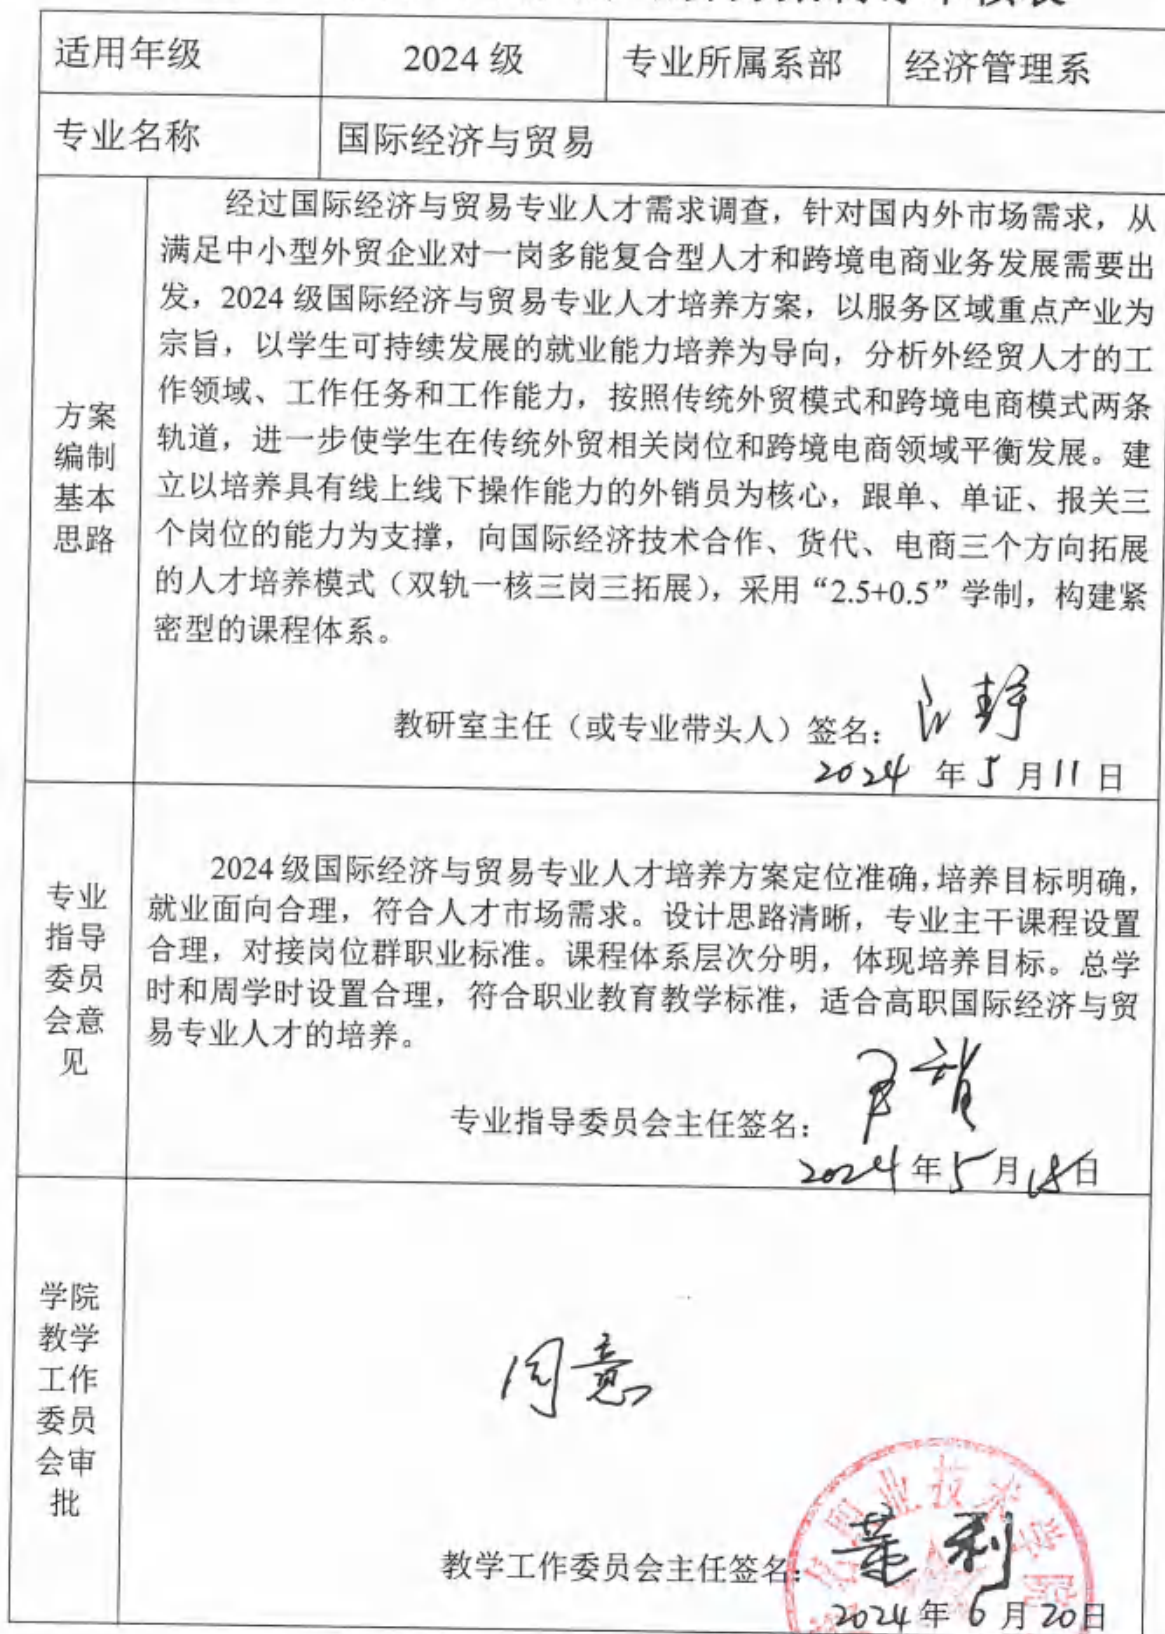 适用年级 2024 级 专业所属系部 经济管理系
专业名称 国际经济与贸易
方案
编制
基本
思路
经过国际经济与贸易专业人才需求调查，针对国内外市场需求，从
满足中小型外贸企业对一岗多能复合型人才和跨境电商业务发展需要出
发，2024 级国际经济与贸易专业人才培养方案，以服务区域重点产业为
宗旨，以学生可持续发展的就业能力培养为导向，分析外经贸人才的工
作领域、工作任务和工作能力，按照传统外贸模式和跨境电商模式两条
轨道，进一步使学生在传统外贸相关岗位和跨境电商领域平衡发展。建
立以培养具有线上线下操作能力的外销员为核心，跟单、单证、报关三
个岗位的能力为支撑，向国际经济技术合作、货代、电商三个方向拓展
的人才培养模式（双轨一核三岗三拓展），采用“2.5+0.5”学制，构建紧
密型的课程体系。
教研室主任（或专业带头人）签名：
2024 年 5 月 11 日
专业
指导
委员
会意
见
2024 级国际经济与贸易专业人才培养方案定位准确，培养目标明确，
就业面向合理，符合人才市场需求。设计思路清晰，专业主干课程设置
合理，对接岗位群职业标准。课程体系层次分明，体现培养目标。总学
时和周学时设置合理，符合职业教育教学标准，适合高职国际经济与贸
易专业人才的培养。
专业指导委员会主任签名：
2024 年 5 月 18 日
学院
教学
工作
委员
会审
批
同意
职业技术学院
教学工作委员会主任签名：
2024 年 6 月 20 日